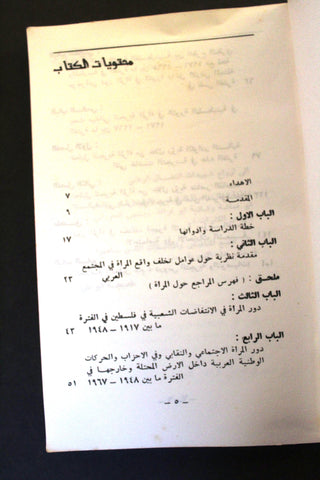 محتويات الكتاب
الاهداء ٧
المقدمة ٩
الباب الاول :
خطة الدراسة وادواتها ١٧
الباب الثاني :
مقدمة نظرية حول عوامل تخلف واقع المرأة في المجتمع
العربي ٢٣
ملحق : ( فهرس المراجع حول المرأة )
الباب الثالث :
دور المرأة في الانتفاضات الشعبية في فلسطين في الفترة
ما بين ١٩١٧ – ١٩٤٨ ٤٣
الباب الرابع :
دور المرأة الاجتماعي والنقابي وفي الاحزاب والحركات
الوطنية العربية داخل الارض المحتلة وخارجها في
الفترة ما بين ١٩٤٨ – ١٩٦٧ ٥١
– ٥ –